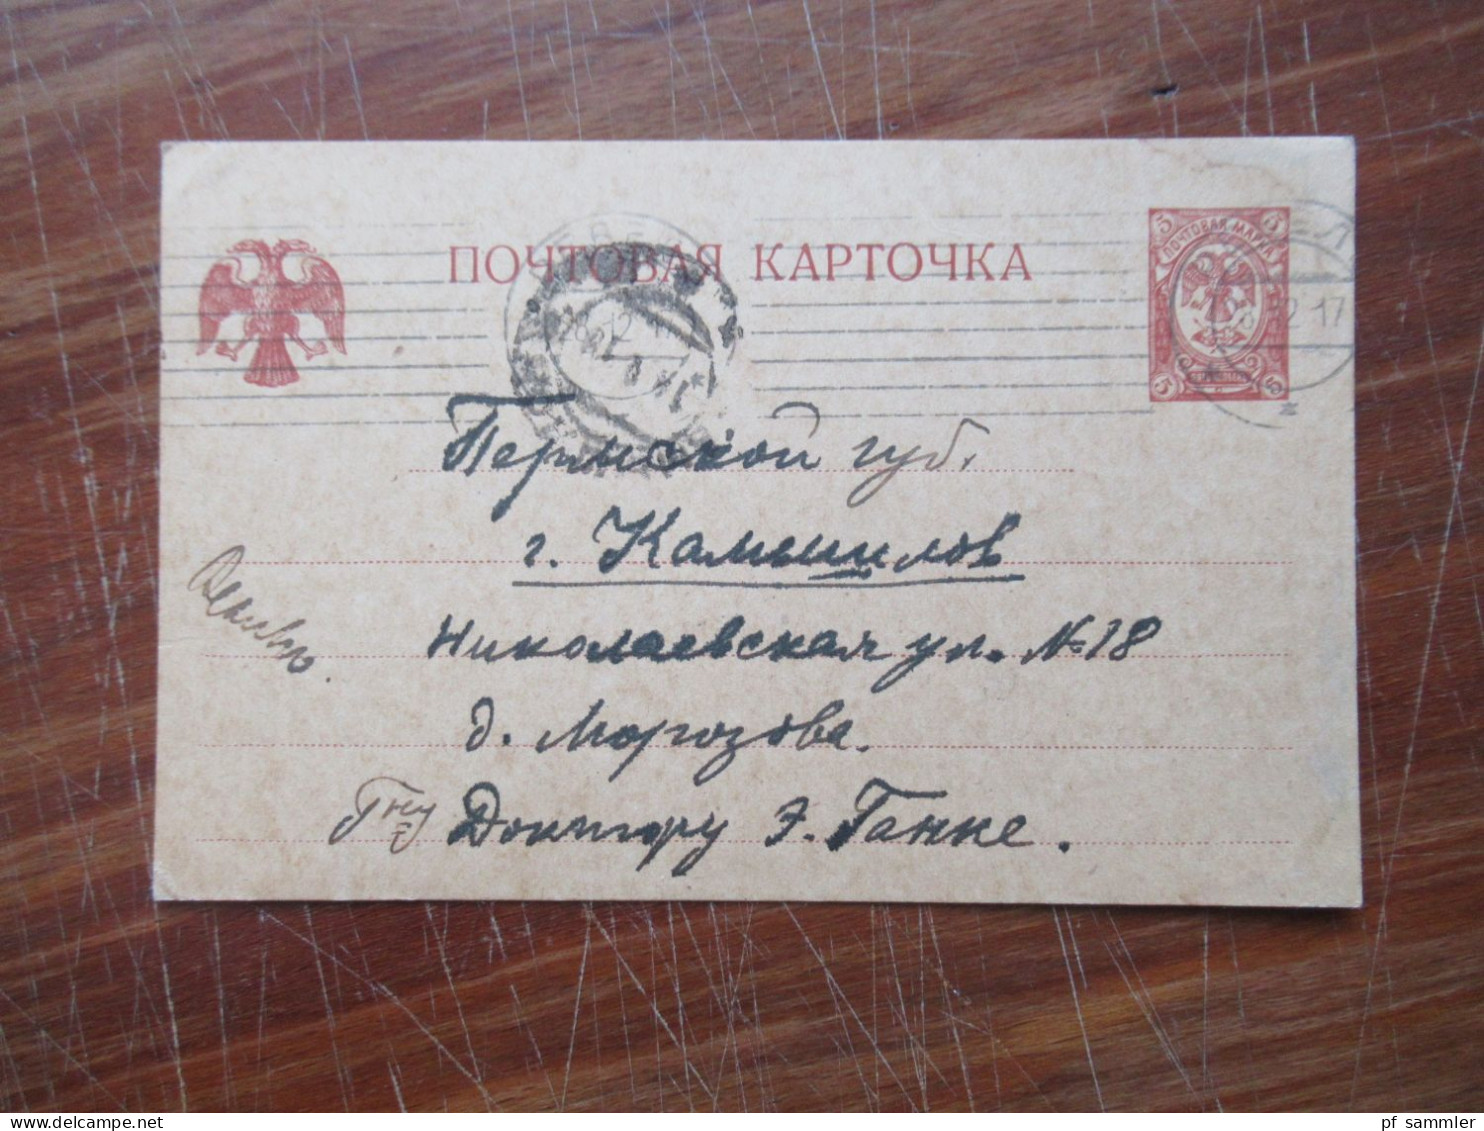 ПОЧТОВАЯ КАРТОЧКА
5 5
ПОЧТОВАЯ МАРКА
5
12 17
Пермской губ.
г. Камышлов
Николаевская ул. № 18
д. Морозова.
Гну Доктору Э. Ганке.
pf_sammler